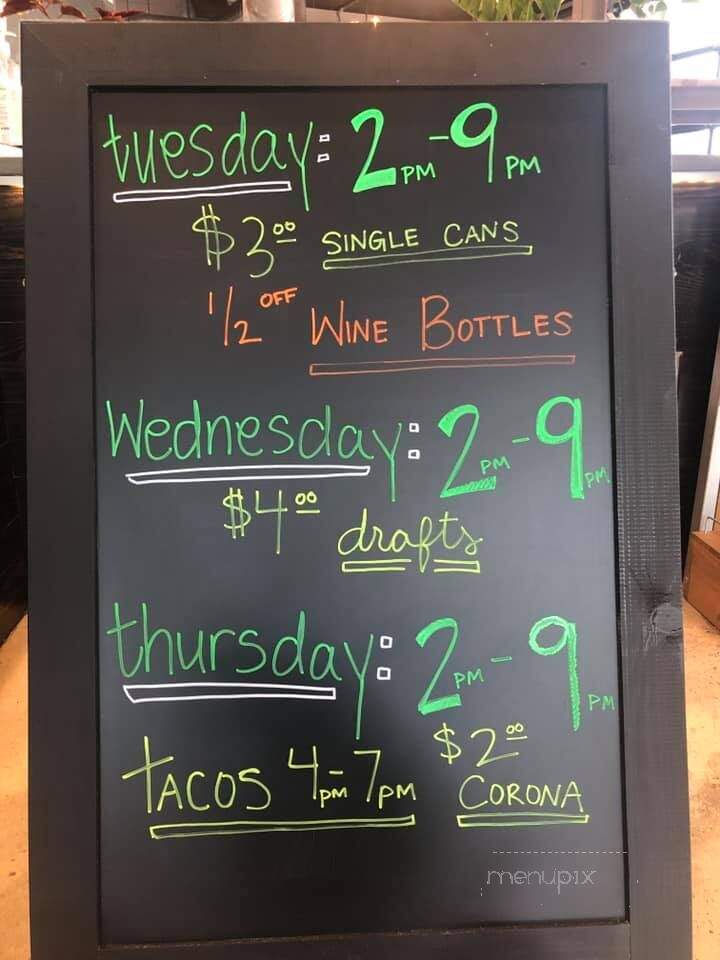 tuesday: 2PM-9PM
$3.00 SINGLE CANS
1/2 OFF WINE BOTTLES
Wednesday: 2PM-9PM
$4.00 drafts
thursday: 2PM-9PM
$2.00
TACOS 4PM-7PM CORONA
menupix